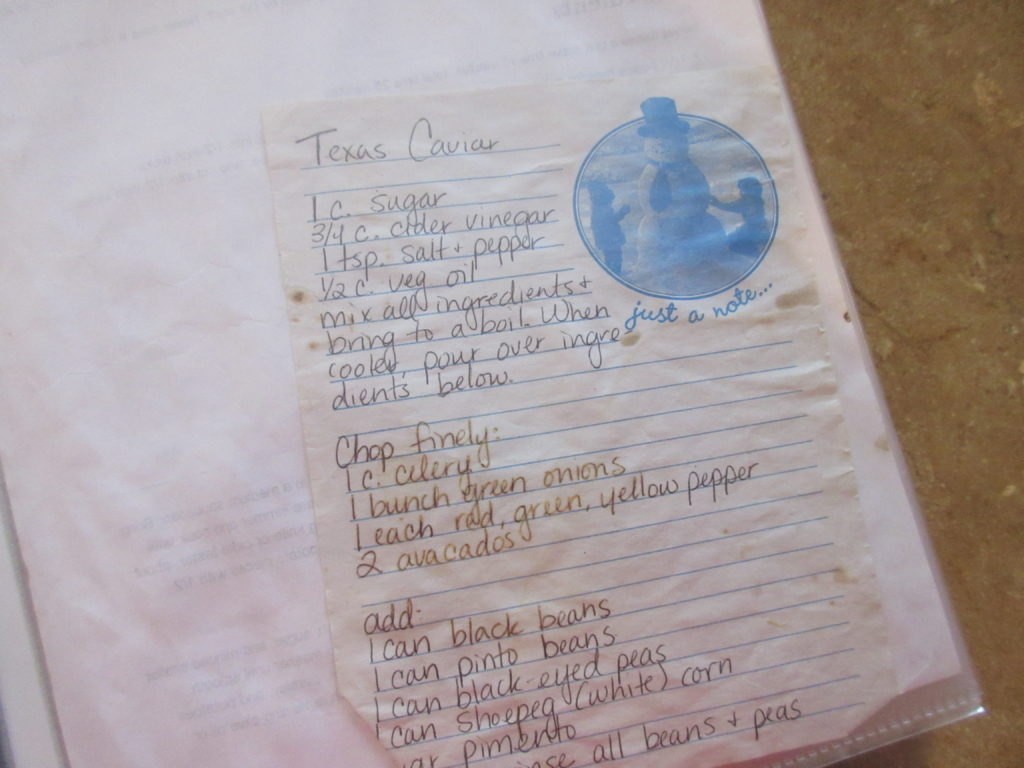 Texas Caviar
1 c. sugar
3/4 c. cider vinegar
1 tsp. salt + pepper
1/2 c. veg oil
mix all ingredients +
bring to a boil. When
cooled, pour over ingre-
dients below.
just a note...
Chop finely:
1 c. celery
1 bunch green onions
1 each red, green, yellow pepper
2 avacados
add:
1 can black beans
1 can pinto beans
1 can black-eyed peas
1 can shoepeg (white) corn
pimento
all beans + peas